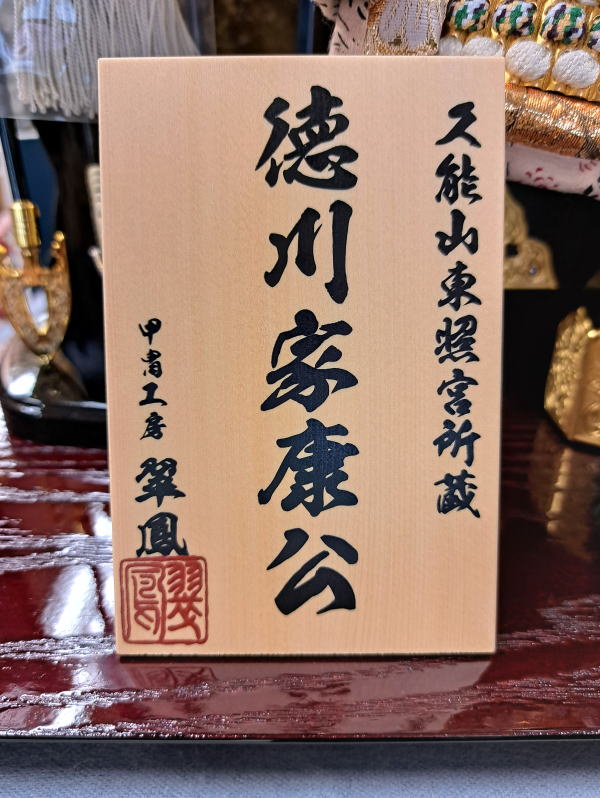 久能山東照宮所蔵
徳川家康公
甲冑工房 翠鳳
翠鳳